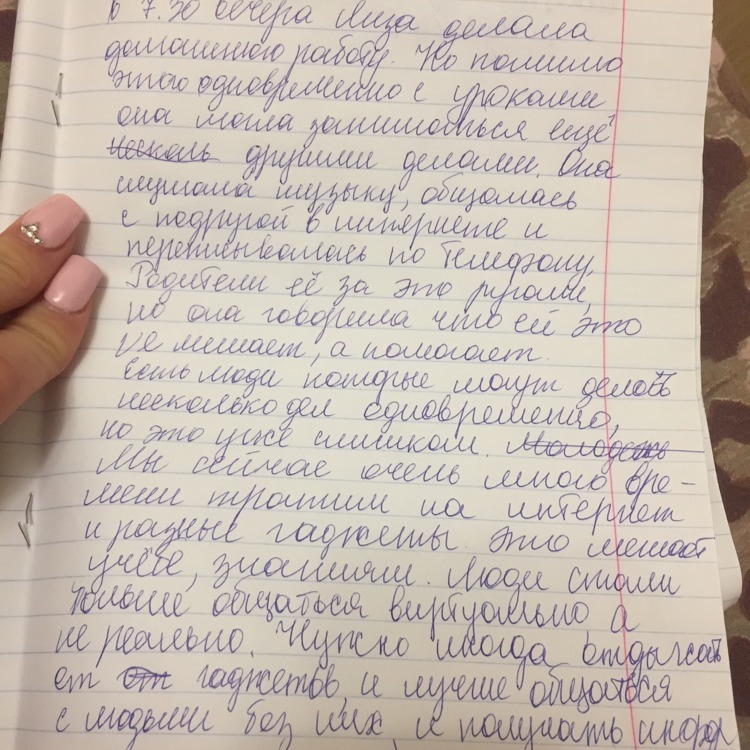 в 7.30 вечера Лиза делала
домашнюю работу. Но помимо
этого одновременно с уроками
она могла заниматься ещё
несколь другими делами. Она
слушала музыку, общалась
с подругой в интернете и
переписывалась по телефону.
Родители её за это ругали,
но она говорила что ей это
не мешает, а помогает.
Есть люди которые могут делать
несколько дел одновременно,
но это уже слишком. Молодежь
Мы сейчас очень много вре-
мени тратим на интернет
и разные гаджеты. Это мешает
учёбе, знаниям. Люди стали
больше общаться виртуально, а
не реально. Нужно иногда отдыхать
от от гаджетов, и лучше общаться
с людьми без них, и получать инфор